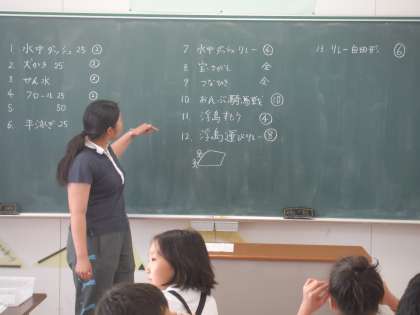 1 水中ダッシュ 25 ②
2 犬かき 25
3 せん水
4 クロール 25
5 50
6. 平泳ぎ 25
7. 水中ダッシュリレー ④
8 宝さがし 全
9 つなひき 全
10 おんぶ騎馬戦 ⑩
11 浮島
12. 浮島運びリレー ⑧
13 リレー自由形 ⑥